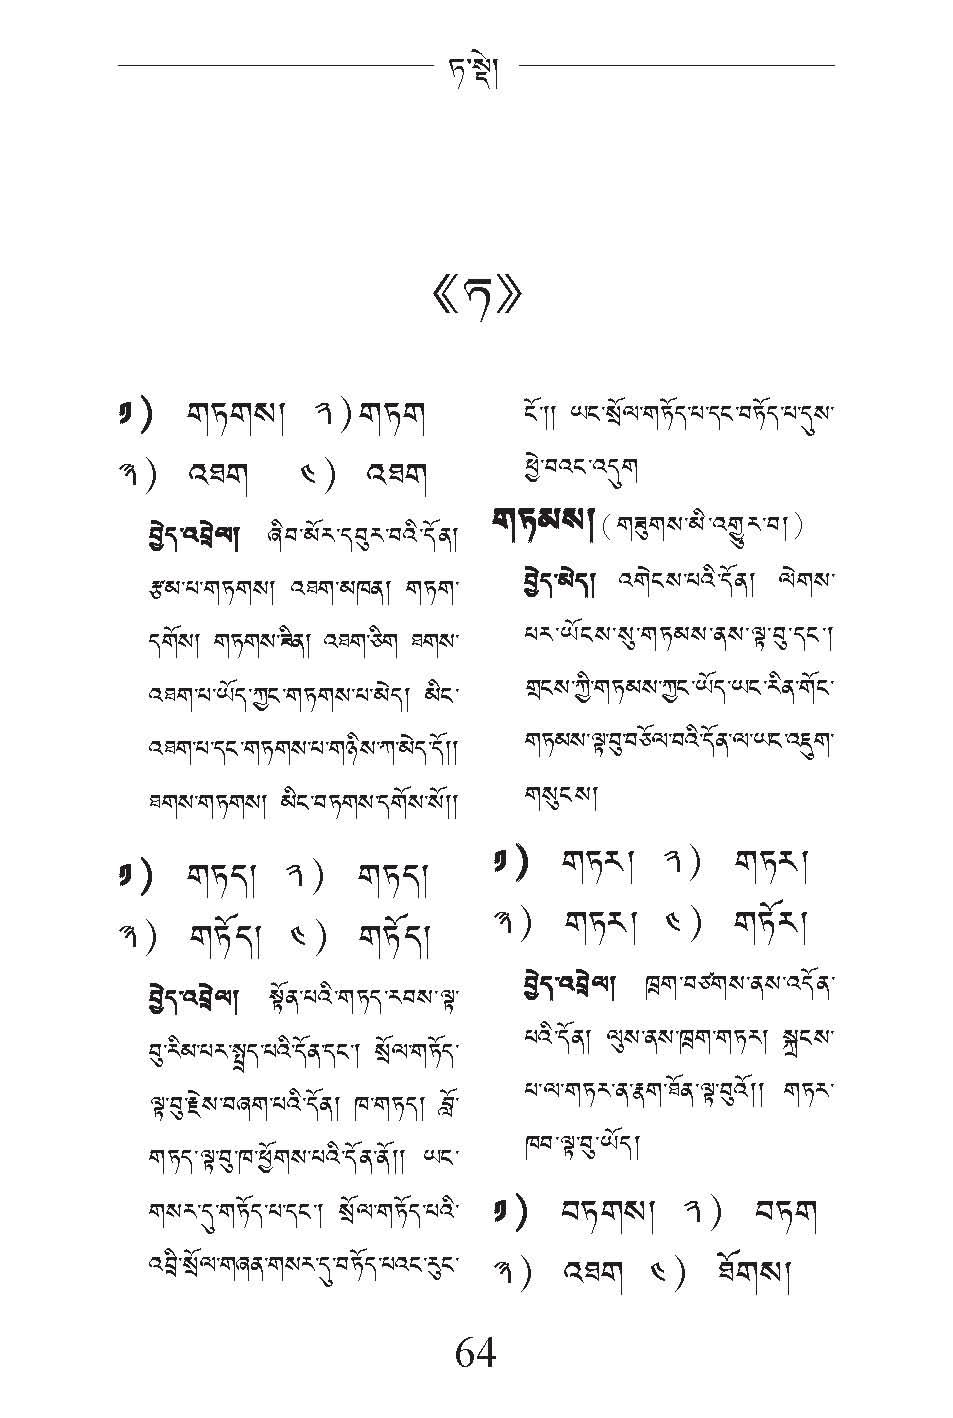 ཏ་སྡེ།
《ཏ》
༡) གཏགས། ༢)གཏག
༣) འཐག ༤) འཐག
བྱེད་འབྲེལ། ཞིབ་མོར་དབུར་བའི་དོན།
རྩམ་པ་གཏགས། འཐག་མཁན། གཏག་
དགོས། གཏགས་ཟིན། འཐག་ཅིག ཐགས་
འཐག་པ་ཡོད་ཀྱང་གཏགས་པ་མེད། མིང་
འཐག་པ་དང་གཏགས་པ་གཉིས་ཀ་མེད་དོ།།
ཐགས་གཏགས། མིང་བཏགས་དགོས་སོ།།
༡) གཏད། ༢) གཏད།
༣) གཏོད། ༤) གཏོད།
བྱེད་འབྲེལ། སྟོན་པའི་གཏད་རབས་ལྟ་
བུ་རིམ་པར་སྤྲད་པའི་དོན་དང་། སྲོལ་གཏོད་
ལྟ་བུ་རྗེས་བཞག་པའི་དོན། ཁ་གཏད། བློ་
གཏད་ལྟ་བུ་ཁ་ཕྱོགས་པའི་དོན་ནོ།། ཡང་
གསར་དུ་གཏོད་པ་དང་། སྲོལ་གཏོད་པའི་
འབྲི་སྲོལ་གཞན་གསར་དུ་བཏོད་པའང་རུང་
ངོ་།། ཡང་སྲོལ་གཏོད་པ་དང་བཏོད་པ་དུས་
ཕྱེ་བའང་འདུག
གཏམས། ( གཟུགས་མི་འགྱུར་བ། )
བྱེད་མེད། འགེངས་པའི་དོན། ལེགས་
པར་ཡོངས་སུ་གཏམས་ནས་ལྟ་བུ་དང་།
གྲངས་ཀྱི་གཏམས་ཀྱང་ཡོད་ཡང་རིན་གོང་
གཏམས་ལྟ་བུ་བཅོལ་བའི་དོན་ལ་ཡང་འཇུག་
གསུངས།
༡) གཏར། ༢) གཏར།
༣) གཏར། ༤) གཏོར།
བྱེད་འབྲེལ། ཁྲག་བཙགས་ནས་འདོན་
པའི་དོན། ལུས་ནས་ཁྲག་གཏར། སྐྲངས་
པ་ལ་གཏར་ན་རྣག་ཐོན་ལྟ་བུའོ།། གཏར་
ཁབ་ལྟ་བུ་ཡོད།
༡) བཏགས། ༢) བཏག
༣) འཐག ༤) ཐོགས།
64